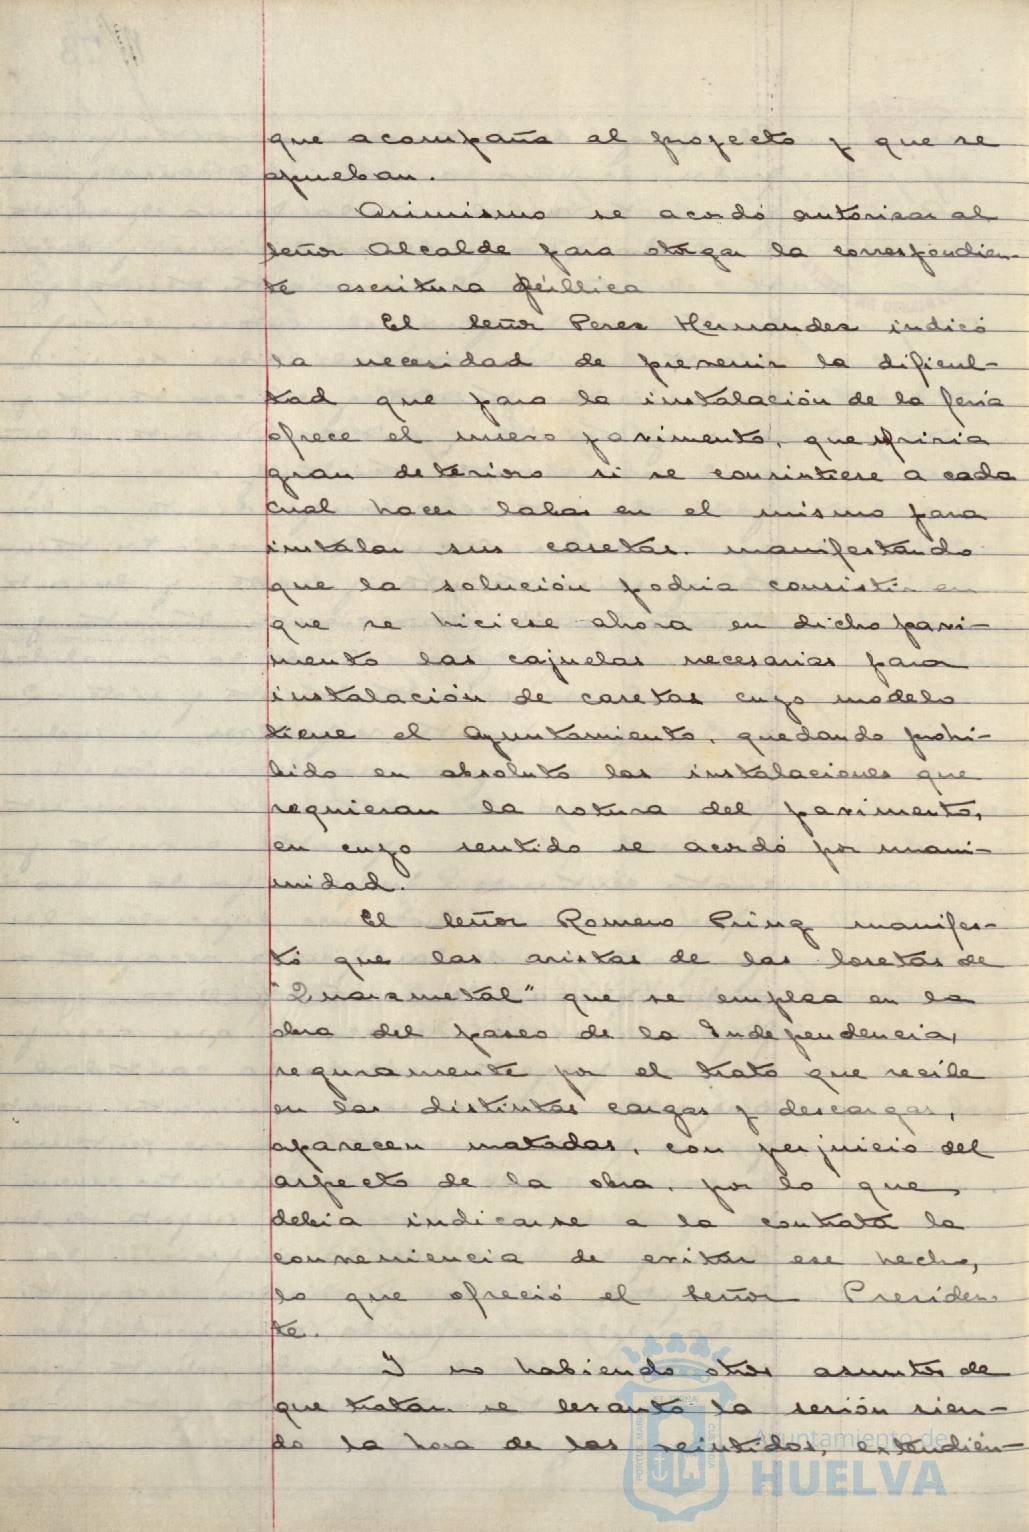 que acompaña al proyecto y que se
aprueban.
Asimismo se acordó autorizar al
señor Alcalde para otorgar la correspondien-
te escritura pública
El señor Perez Hernandez indicó
la necesidad de prevenir la dificul-
tad que para la instalación de la feria
ofrece el nuevo pavimento, que sufriria
gran deterioro si se consintiese a cada
cual hacer labor en el mismo para
instalar sus casetas. manifestando
que la solución podria consistir en
que se hiciese ahora en dicho pavi-
mento las cajuelas necesarias para
instalación de casetas cuyo modelo
tiene el Ayuntamiento, quedando prohi-
bido en absoluto las instalaciones que
requieran la rotura del pavimento,
en cuyo sentido se acordó por unani-
midad.
El señor Romero Pring manifes-
tó que las aristas de las losetas de
"Quarzmetal" que se emplea en la
obra del paseo de la Independencia,
seguramente por el trato que recibe
en las distintas cargas y descargas,
aparecen matadas, con perjuicio del
aspecto de la obra, por lo que
debia indicarse a la contrata la
conveniencia de evitar ese hecho,
lo que ofreció el señor Presiden
te.
Y no habiendo otros asuntos de
que tratar se levantó la sesión sien-
do la hora de las veintidos, extendién-
Ayuntamiento de
HUELVA